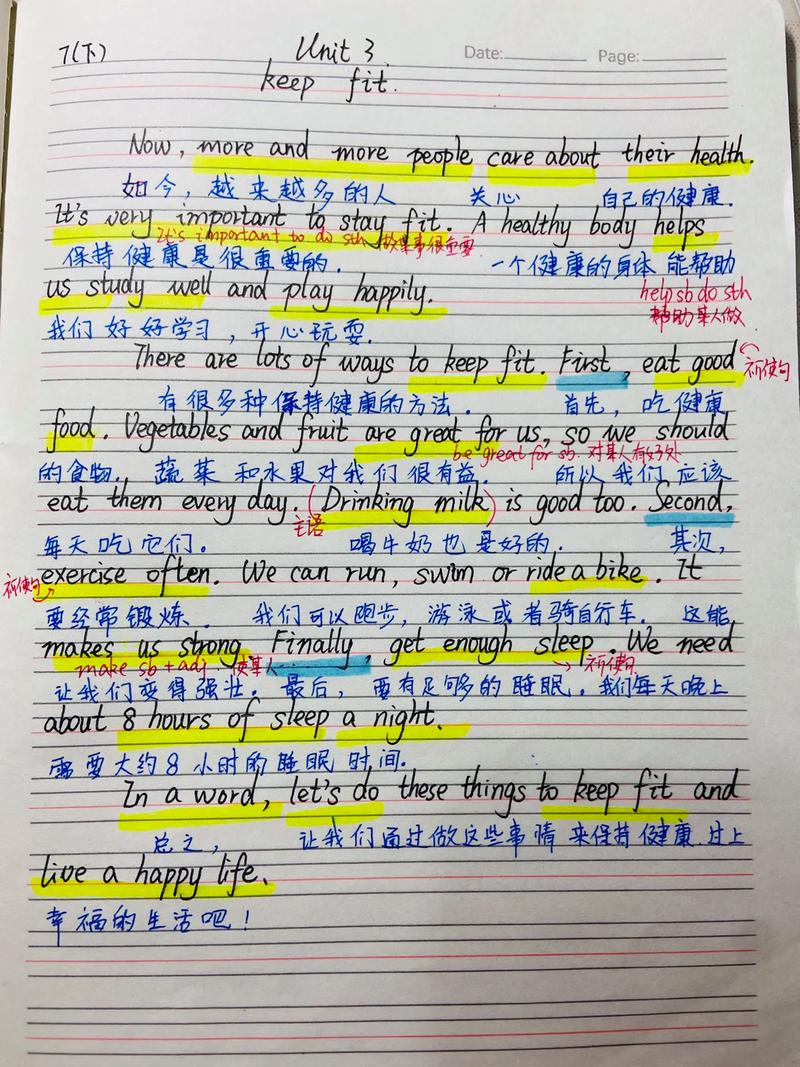 7(下) Unit 3 Date: Page:
keep fit.
Now, more and more people care about their health.
如今,越来越多的人 关心 自己的健康.
It's very important to stay fit. A healthy body helps
It's important to do sth 做某事很重要.
保持健康是很重要的. 一个健康的身体 能帮助
us study well and play happily.
help sb do sth
我们好好学习,开心玩耍.
帮助某人做
There are lots of ways to keep fit. First, eat good
祈使句
有很多种保持健康的方法. 首先,吃健康
food. Vegetables and fruit are great for us, so we should
be great for sb. 对某人有好处
的食物. 蔬菜和水果对我们很有益. 所以我们应该
eat them every day. (Drinking milk) is good too. Second,
主语
每天吃它们。 喝牛奶也是好的. 其次,
祈使句
exercise often. We can run, swim or ride a bike. It
要经常锻炼. 我们可以跑步,游泳或者骑自行车. 这能
makes us strong. Finally, get enough sleep. We need
make sb + adj 使某人... → 祈使句
让我们变得强壮。最后,要有足够的睡眠。我们每天晚上
about 8 hours of sleep a night.
需要大约8小时的睡眠时间.
In a word, let's do these things to keep fit and
总之, 让我们通过做这些事情来保持健康.过上
live a happy life.
幸福的生活吧!